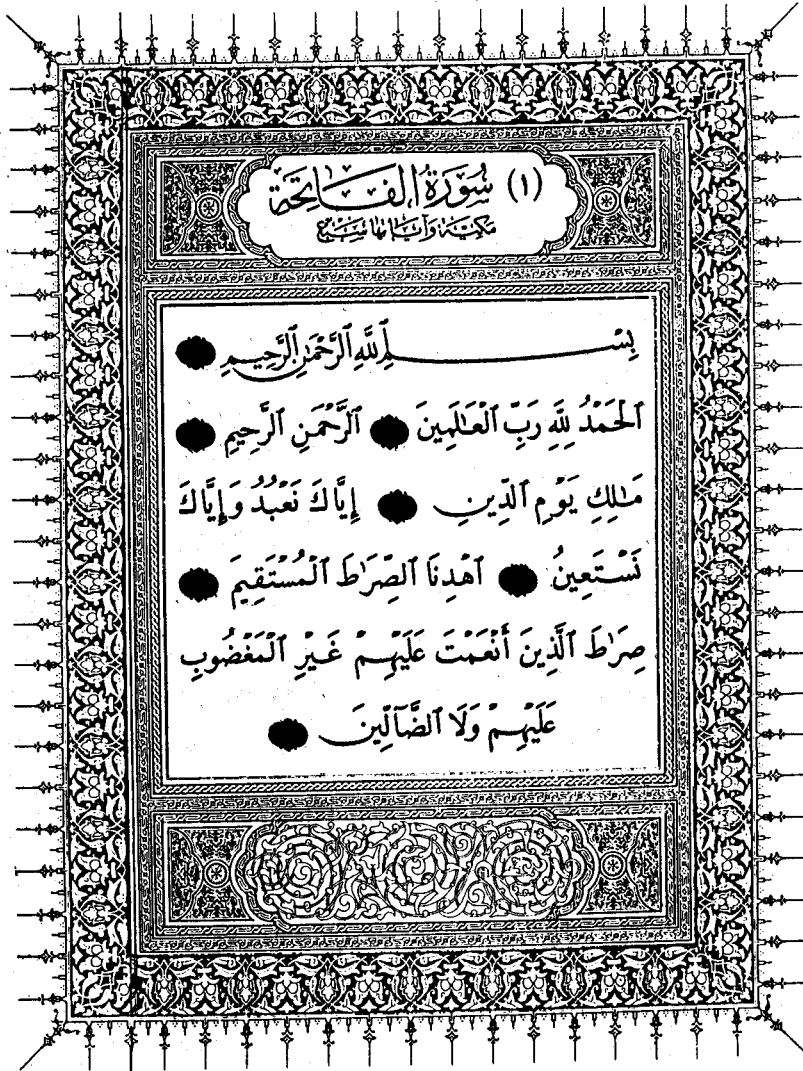 (١) سُورَةُ الفَاتِحَة
مَكيَّة وَآيَاتُهَا سَبْع
بِسْمِ ٱللَّهِ ٱلرَّحْمَٰنِ ٱلرَّحِيمِ
ٱلْحَمْدُ لِلَّهِ رَبِّ ٱلْعَٰلَمِينَ ٱلرَّحْمَٰنِ ٱلرَّحِيمِ
مَٰلِكِ يَوْمِ ٱلدِّينِ إِيَّاكَ نَعْبُدُ وَإِيَّاكَ
نَسْتَعِينُ ٱهْدِنَا ٱلصِّرَٰطَ ٱلْمُسْتَقِيمَ
صِرَٰطَ ٱلَّذِينَ أَنْعَمْتَ عَلَيْهِمْ غَيْرِ ٱلْمَغْضُوبِ
عَلَيْهِمْ وَلَا ٱلضَّآلِّينَ